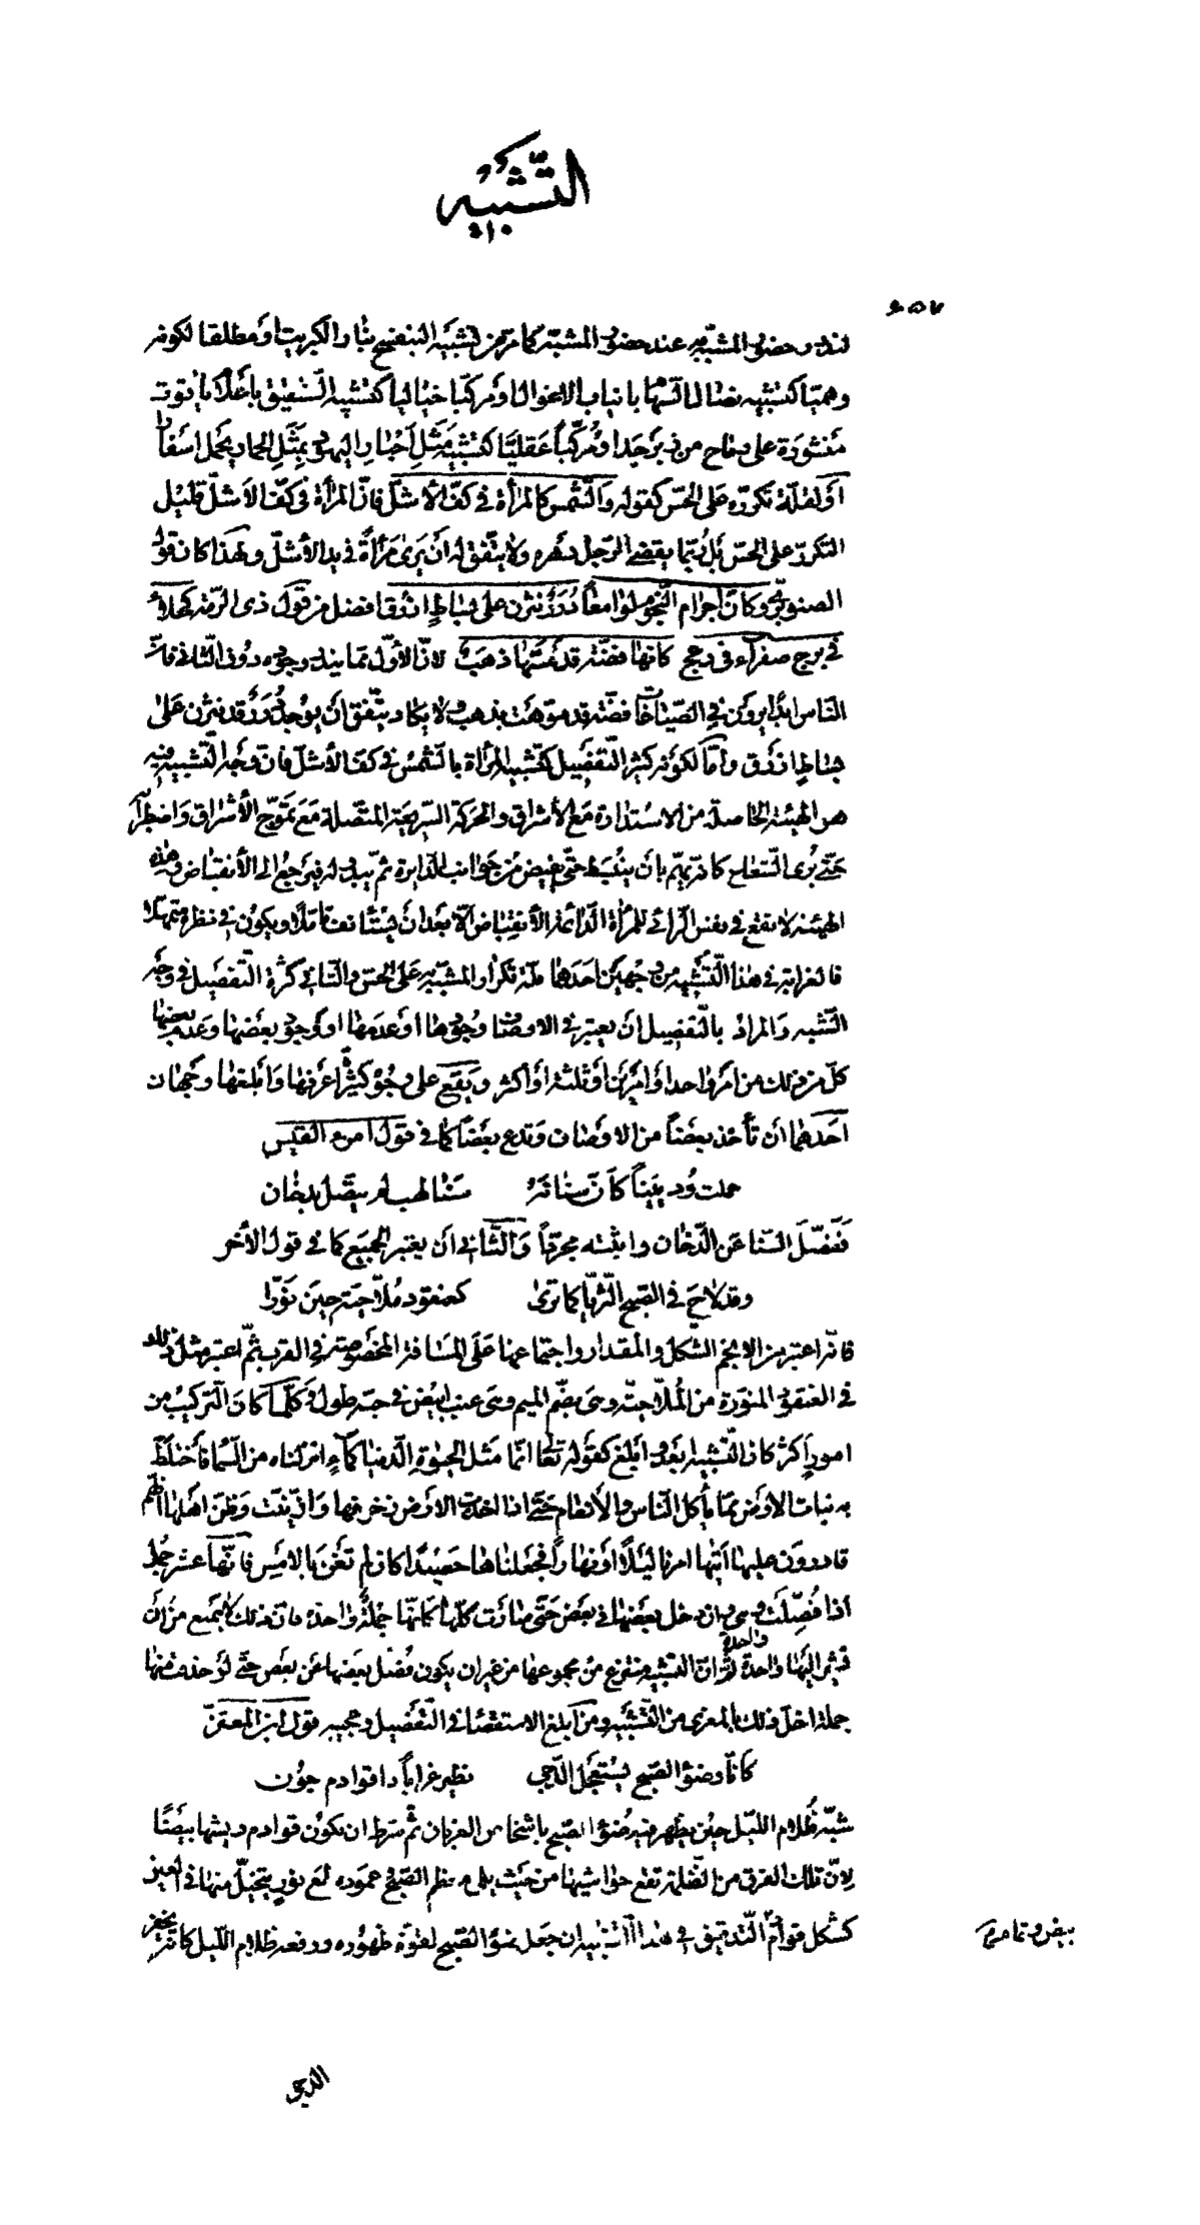 التّشبيه
لندور حضور المشبّه به عند حضور المشبّه كما مرّ من تشبيه البنفسج بنار الكبريت أو مطلقا لكونه
وهميّا كتشبيه نصال السّهام بانياب الاغوال او مركّبا خياليا كتشبيه الشّقيق باعلام ياقوت
منشورة على رماح من زبرجد او مركّباً عقليّا كتشبيه مَثَلِ احبار اليهود بمثل الحمار يحمل اسفارا
أو لقلّة تكرّره على الحسّ كقوله والشّمس كالمرأة في كفّ الأشلّ فانّ المرأة في كفّ الاشلّ قليل
التكرّر على الحسّ بل ربّما يقضي الرّجل دهره ولا يتّفق له أن يرى مرأةً في يد الأشلّ ولهذا كان قول
الصنوبري وكأنّ اجرام النّجوم لوامعاً دررٌ نثرن على بساطٍ ازرق افضل من قول ذي الرّمّة كحلاءُ
في برج صفراء في دعج كانها فضّة قد مسّها ذهبٌ لانّ الأوّل ممّا يندر وجوده دون الثّاني فانّ
النّاس ابداً يرون في الصّياغات فضّة قد موّهت بذهب ولا يكاد يتّفق ان يوجد درر قد نثرن على
بساطٍ ازرق وامّا لكونه كثير التّفصيل كتشبيه المرأة بالشّمس في كفّ الأشلّ فان وجه التّشبيه فيه
هو الهيئة الحاصلة من الاستدارة مع الأشراق والحركة السّريعة المتّصلة مع تموّج الأشراق واضطرابه
حتّى يُرى الشّعاع كانّه يهمّ بأن ينبسط حتّى يفيض من جوانب الدّايرة ثم يبدو له فيرجع الى الأنقباض وهذه
الهيئة لا تقع في نفس الرّائي للمرأة الدّائمة الأنقباض الّا بعد أن يستأنف تامّلا ويكون في نظره متمهّلا
فالغرابة في هذا التّشبيه من وجهين احدهما قلّة تكرار المشبّه به على الحسّ والثّاني كثرة التّفصيل في وجه
الشّبه والمراد بالتّفصيل أن يعتبر في الاوصاف وجودها او عدمها او وجود بعضها وعدم بعضها
كلّ من ذلك من امر واحد او امرين او ثلثة او اكثر ويقع على وجوه كثيرة اعرفها وابلغها وجهان
احدهما أن تأخذ بعضاً من الاوصاف وتدع بعضاً كما في قول امرء القيس
حملت رُدينيّاً كأنّ سنانه سَنا لهب لم يتّصل بدخان
ففصّل السّنا عن الدّخان واثبته مجرّداً والثّاني أن يعتبر الجميع كما في قول الأخر
وقد لاح في الصّبح الثّريّا كما ترى كعنقود مُلّاحيّة حين نوّرا
فانّه اعتبر من الانجم الشكل والمقدار واجتماعها على المسافة المخصوصة في القرب ثمّ اعتبر مثل ذلك
في العنقود المنوّرة من المُلّاحيّة وهي بضمّ الميم وهي عنب ابيض في حبّه طول وكلّما كان التّركيب من
امور اكثر كان التّشبيه ابعد وابلغ كقوله تعالى انّما مثل الحيوة الدّنيا كمآءٍ انزلناه من السّماء فاختلط
به نبات الأرض ممّا يأكل النّاس والأنعام حتّى اذا اخذت الارض زخرفها وازّيّنت وظنّ اهلها انّهم
قادرون عليها اتيها امرنا ليلًا أو نهاراً فجعلناها حصيدًا كان لم تغن بالامس فانّها عشر جمل
اذا فُصّلت وهي وان دخل بعضها في بعض حتّى صارت كلّها كانّها جملةٌ واحدة فانّ ذلك لا يمنع من أن
تشير اليها واحدة واحدة ثمّ انّ التشبيه منتزع من مجموعها من غير ان يكون فصل بعضها عن بعض حتّى لو حذفت منها
جملة اخلّ ذلك بالمغزى من التّشبيه ومن ابلغ الاستقصاء في التّفصيل وعجيبه قول ابن المعتزّ
كانّا وضوء الصّبح يستعجل الدّجى نطير غراباً ذا قوادم جون
شبّه ظلام اللّيل حين يظهر فيه ضوء الصّبح باشخاص الغربان ثمّ شرط ان يكون قوادم ريشها بيضًا
لانّ تلك الفرق من الظّلمة تقع حواشيها من حيث يلي معظم الصّبح وعموده لمع نور يتخيّل منها في العين
كشكل قوادم بيض وتمام التّدقيق في هذا التّشبيه ان جعل ضوء الصّبح لقوّة ظهوره ودفعه ظلام اللّيل كانّه يحفز
الدّجى